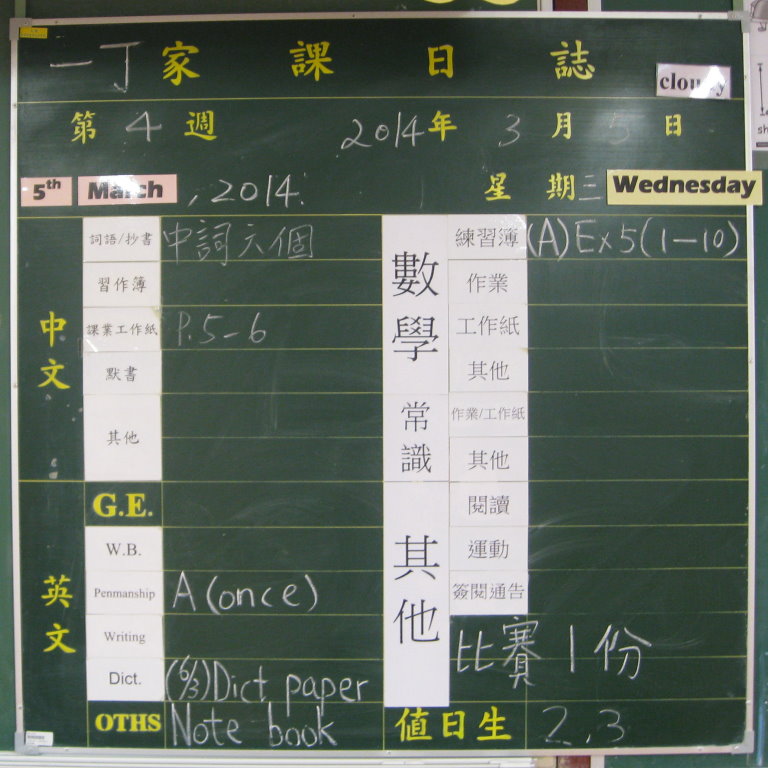 一丁家課日誌
cloudy
第4週 2014年3月5日
5th March, 2014. 星期三 Wednesday
中文
詞語/抄書 中詞六個
習作簿
課業工作紙 P.5-6
默書
其他
英文
G.E.
W.B.
Penmanship A (once)
Writing
Dict. (6/3) Dict paper
OTHS Note book
數學
練習簿 (A) Ex 5 (1-10)
作業
工作紙
其他
常識
作業/工作紙
其他
其他
閱讀
運動
簽閱通告
比賽1份
值日生 2,3